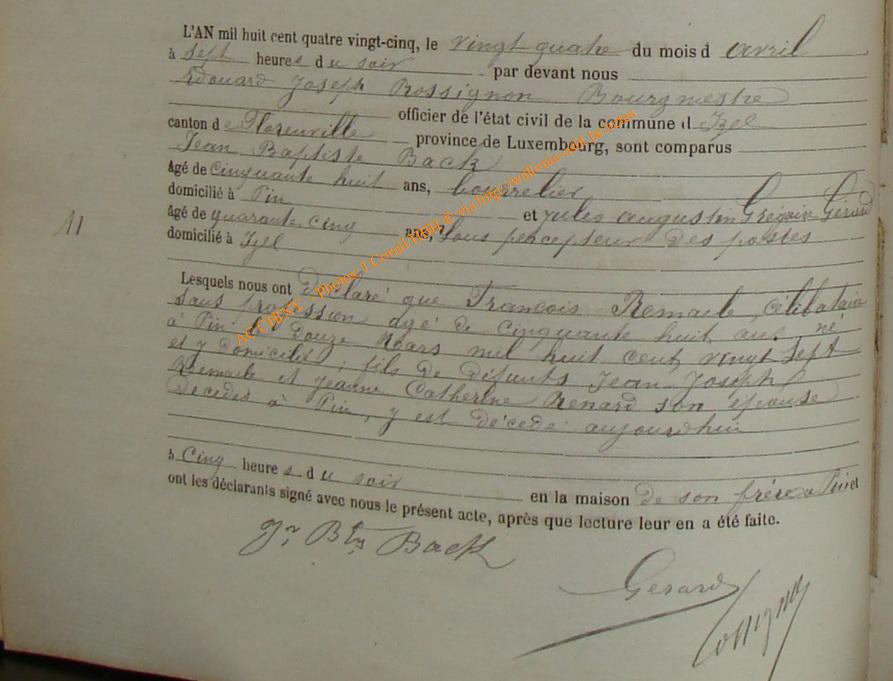 L'AN mil huit cent quatre vingt-cinq, le vingt quatre du mois d avril
à Sept heures du soir par devant nous
Edouard Joseph Rossignon Bourgmestre
officier de l'état civil de la commune d Izel
canton de Florenville province de Luxembourg, sont comparus
Jean Baptiste Back
âgé de Cinquante huit ans, bourrelier
domicilié à Pin et Jules Augustin Grégoire Gérard
âgé de quarante cinq ans, Sous percepteur des postes
domicilié à Izel
11
Lesquels nous ont déclaré que François Remacle, célibataire
sans profession agé de cinquante huit ans, né
à Pin le douze Mars mil huit cent vingt sept
et y domicilié ; fils de défunts Jean Joseph
Remacle et Jeanne Catherine Renard son épouse
décédés à Pin, y est décédé aujourdhui
à Cinq heures du soir en la maison de son frère à Pin et
ont les déclarants signé avec nous le présent acte, après que lecture leur en a été faite.
Jn Bte Back
Gérard
Rossignon